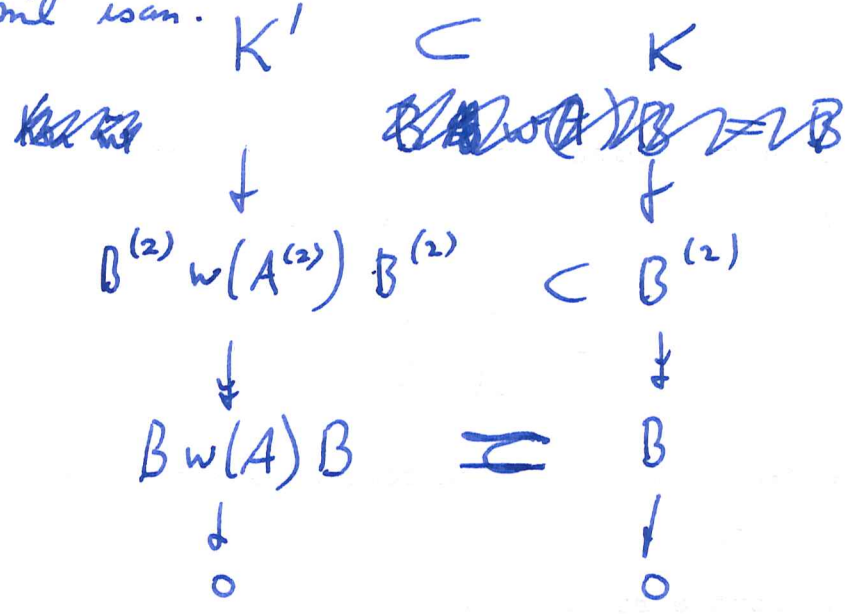 isom.
K' ⊂ K
↓ ↓
B^(2) w(A^(2)) B^(2) ⊂ B^(2)
↓ ↓
B w(A) B = B
↓ ↓
0 0